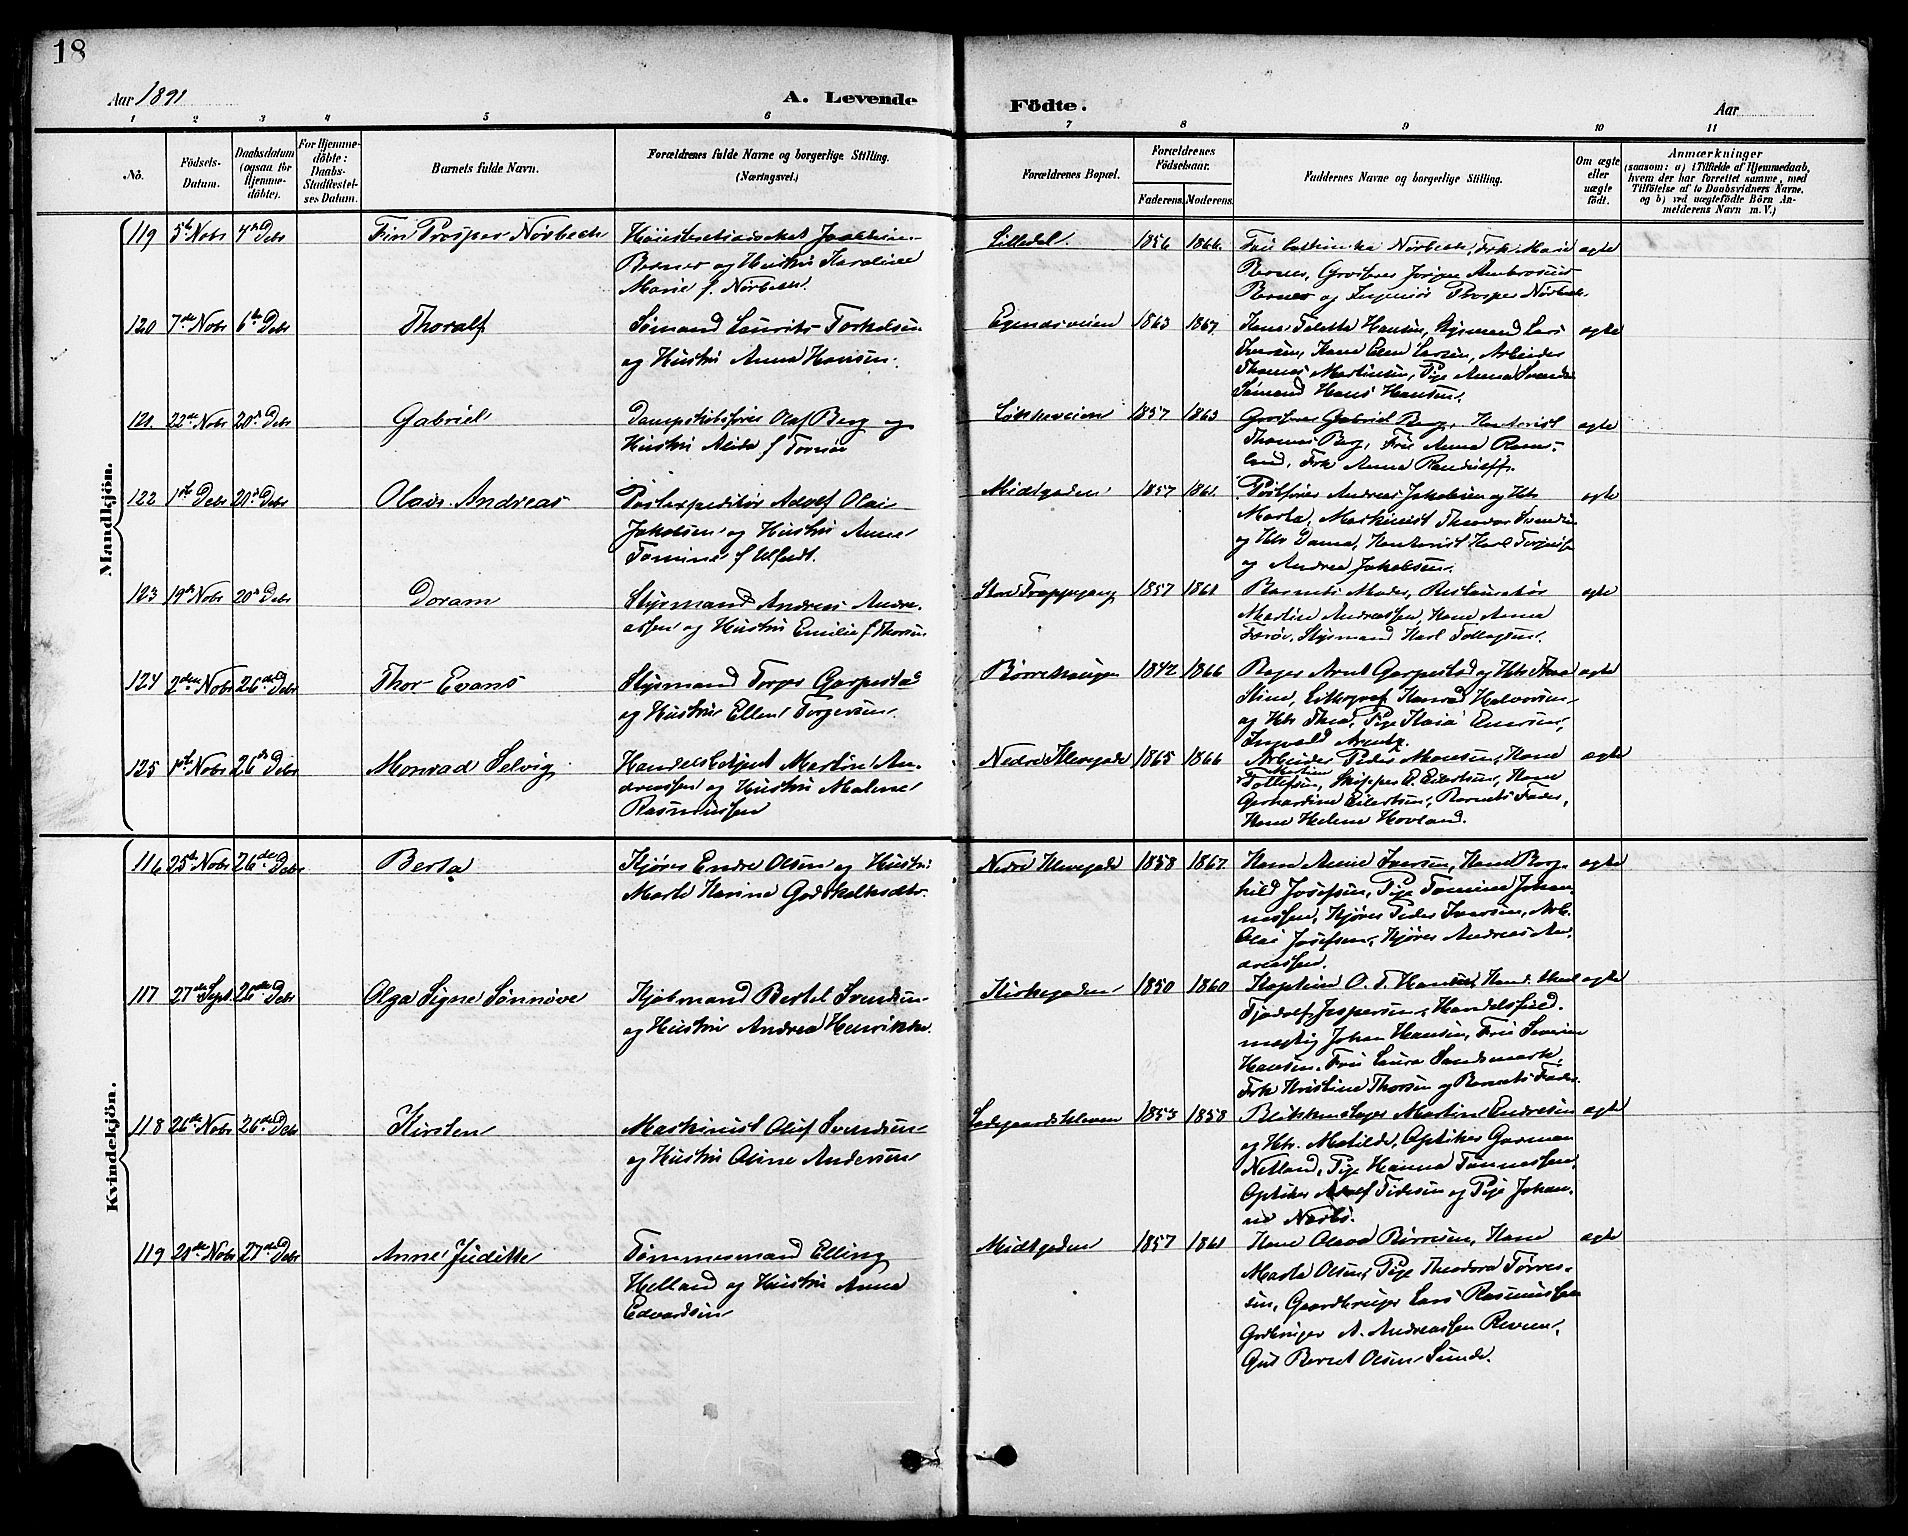 18
Aar 1891
A. Levende
Födte.
Aar
1 2 3 4 5 6 7 8 9 10 11
No. Födsels-Datum. Daabsdatum (ogsaa for Hjemme-döbte). For Hjemme-döbte: Daabs-Stadfestel-ses Datum. Barnets fulde Navn. Forældrenes fulde Navne og borgerlige Stilling. (Næringsvei.) Forældrenes Bopæl. Forældrenes Födselsaar. Faderens. Moderens. Faddernes Navne og borgerlige Stilling. Om ægte eller uægte födt. Anmærkninger (saasom: a) i Tilfælde af Hjemmedaab, hvem der har forrettet samme, med Tilföielse af to Daabsvidners Navne, og b) ved uægtefödte Börn An-melderens Navn m. V.)
Mandkjön.
119 5te Nobr 4de Debr Fin Prosper Nörbech
Berner og Hustru Karoline
Marie f. Nörbech.
Lilledal. 1856 1866. Nörbech, Frk. Marie ægte
Berner, Ambrosius
Berner og Ingeniör Prosper Nörbech.
120 7de Nobr 6te Debr Thoralf Sömand Laurits Torkelsen
og Hustru Anna Hansen.
Egenæsveien 1863 1867. Kone Hansen, Styrmand Lars
Iversen, Kone Elen Larsen, Arbeider
Thomas Martinsen, Pige Anna
Sömand Hans Hansen.
ægte
121. 22de Nobr 20de Debr Gabriel Dampskibsförer Olaf Berg og
Hustru Alida f Tornöe
Lökkeveien 1857 1863 Gabriel Berg, Kontorist
Thomas Berg, Frue Anna
Frk Anna Randulff.
ægte
122 1ste Debr 20de Debr Olaus Andreas Postexpeditör Adolf Olai
Jakobsen og Hustru Anne
Tomine f Ulfedt.
Midtgaden 1857 1861. Andreas Jakobsen og Hstr
Marta, Maskinist Svendsen
og Hstr Kontorist Karl
og Andrea Jakobsen.
ægte
123 19de Nobr 20de Debr Doram Styrmand Andreas Andre-
assen og Hustru Emilie f Thorsen
Store Trappegang 1857 1861 Barnets Moder, Restauratör
Martin Andreassen, Kone Anna
Færöe, Styrmand Karl Tollagsen.
ægte
124 2den Nobr 26de Debr Thor Evans Styrmand Torger Garpestad
og Hustru Ellen Torgersen.
Börrehaugen 1842 1866 Arnt Garpestad og Hstr
Stine, Litograf Konrad Halvorsen
og Hstr Thea, Pige Kaia
Ingvald
ægte
125 1ste Nobr 26de Debr Monrad Selvig Handelsbetjent Martin An-
dreassen og Hustru Malene
Rasmussen
Nedre Klevegade 1865 1866 Arbeider Peder Monsen, Kone
Martine
Tollefsen, Skipper P. Eilertsen, Kone
Gerhardine Eilertsen, Barnets Fader,
Kone Helene Hovland.
ægte
Kvindekjön.
116 25de Nobr 26de Debr Berta Kjörer Endre Olsen og Hustru
Marte Karine Godskalksdtr.
Nedre Klevegade 1858 1867. Kone Anne Iversen, Kone Borg-
hild Josefsen, Pige Tomine Johan-
nessen, Kjörer Peder Iversen, Arb.
Olai Josefsen, Kjörer Andreas An-
dreassen.
ægte
117 27de Sept. 26de Debr Olga Signe Sönnöve Kjöbmand Bertel Svendsen
og Hustru Andrea Henrikke.
Kirkegaden 1850 1860 Kaptein O. T. Hansen,
Jespersen, Handelsfuld-
mægtig Johan Hansen, Frue Severine
Hansen, Frue Laura Sandsmark,
Frk Kristine Thorsen og Barnets Fader.
ægte
118 26de Nobr 26de Debr Kirsten Maskinist Oluf Svendsen
og Hustru Oline Andersen
Ladegaardskleven 1853 1858 Blikkenslager Martin Endresen
og Hstr. Matilde, Optiker Gorman
Netland, Pige Hanna Tönnessen,
Optiker Adolf Tidesen og Pige Johan-
ne
ægte
119 28de Nobr 27de Debr Anne Juditte Tömmermand Elling
Helland og Hustru Anna
Edvardsen
Midtgaden 1857 1861 Kone Olava Börresen, Kone
Marta Olsen, Pige Theodora Törres-
sen, Gaardbruger Lars Rasmussen
Gdbruger A. Andreassen Reveen,
Gut Bernt Olsen Sunde.
ægte